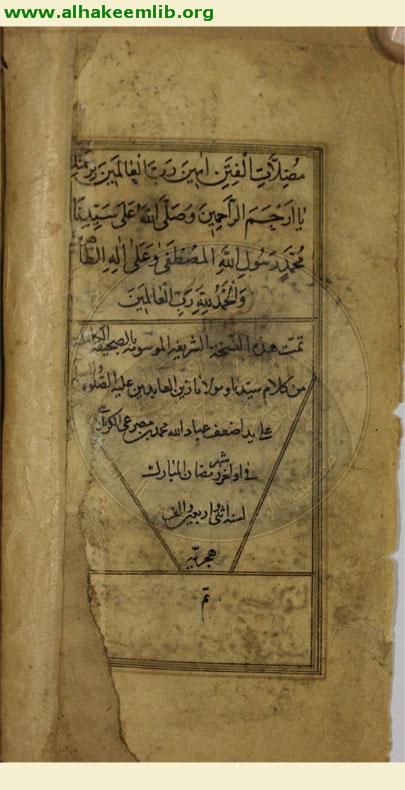 www.alhakeemlib.org
مضلات الفتن امين رب العالمين برحمتك
يا ارحم الراحمين وصلى الله على سيدنا
محمد رسول الله المصطفى وعلى اله الطا
والحمد لله رب العالمين
تمت هذه النسخة الشريفه الموسومه بالصحيفه
من كلام سيدنا ومولانا زين العابدين عليه الصلوة
على يد اضعف عباد الله محمد
فى اواخر شهر رمضان المبارك
لسنة اثنى واربعين والف
هجريه
تم